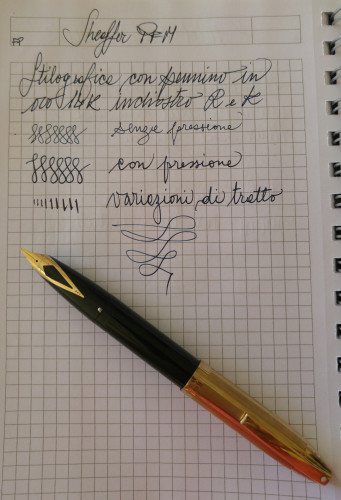 FP Sheaffer PFM
Stilografica con pennino in
oro 14K inchiostro R e K
senza pressione
con pressione
variazioni di tratto